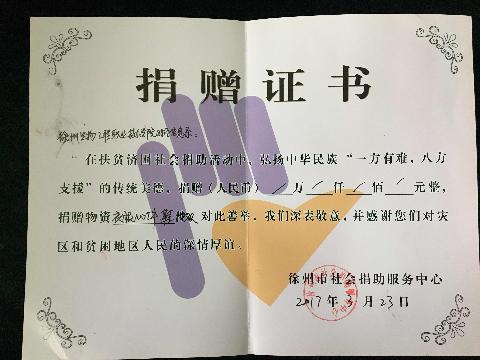 捐赠证书
徐州生物工程职业技术学院
在扶贫济困社会捐助活动中，弘扬中华民族“一方有难，八方
支援”的传统美德，捐赠（人民币）／万／仟／佰／元整，
捐赠物资 对此善举，我们深表敬意，并感谢您们对灾
区和贫困地区人民的深情厚谊。
徐州市社会捐助服务中心
2017年3月23日